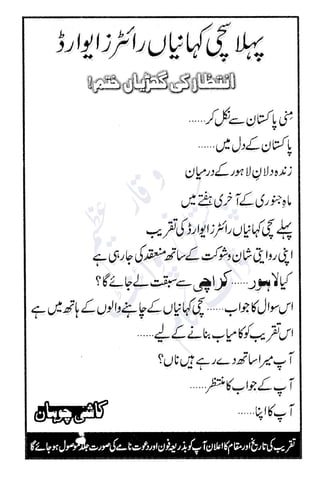 پہلا سچی کہانیاں رائٹرز ایوارڈ
انتظار کی گھڑیاں ختم!
مِنی پاکستان سے نکل کر......
پاکستان کے دل میں......
زندہ دلانِ لاہور کے درمیان
ماہِ جنوری کے آخری ہفتے میں
پہلے سچی کہانیاں رائٹرز ایوارڈ کی تقریب
اپنی روایتی شان و شوکت کے ساتھ منعقد کی جا رہی ہے
کیا لاہور...... کراچی سے سبقت لے جائے گا؟
اس سوال کا جواب...... سچی کہانیاں کے چاہنے والوں کے ہاتھ میں ہے
اس تقریب کو کامیاب بنانے کے لیے......
آپ میرا ساتھ دے رہے ہیں ناں؟
آپ کے جواب کا منتظر
آپ کا اپنا...... کاشی چوہان
تقریب کی تاریخ اور مقام کا اعلان آپ کو بذریعہ فون اور دعوت نامے کی صورت جلد موصول ہو جائے گا